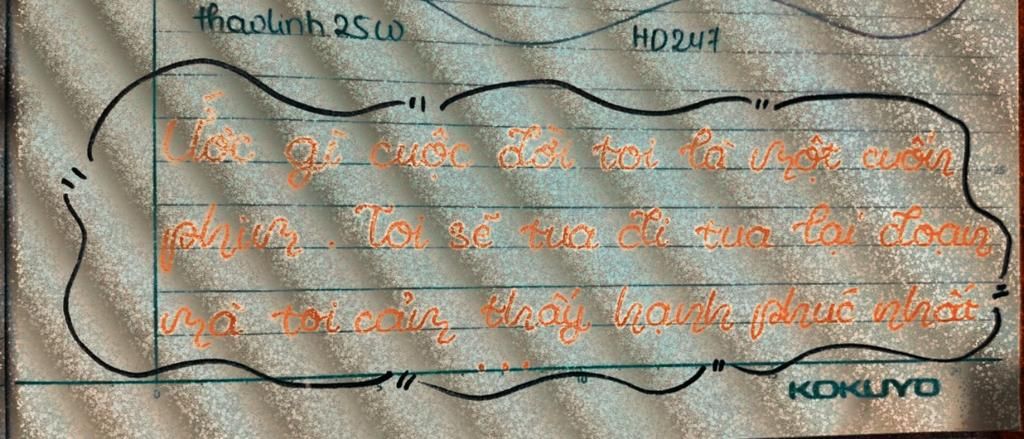 thaolinh.25w
HD247
Ước gì cuộc đời toi là một cuốn
phim . Toi sẽ tua đi tua lại đoạn
mà toi cảm thấy hạnh phúc nhất
...
KOKUYO